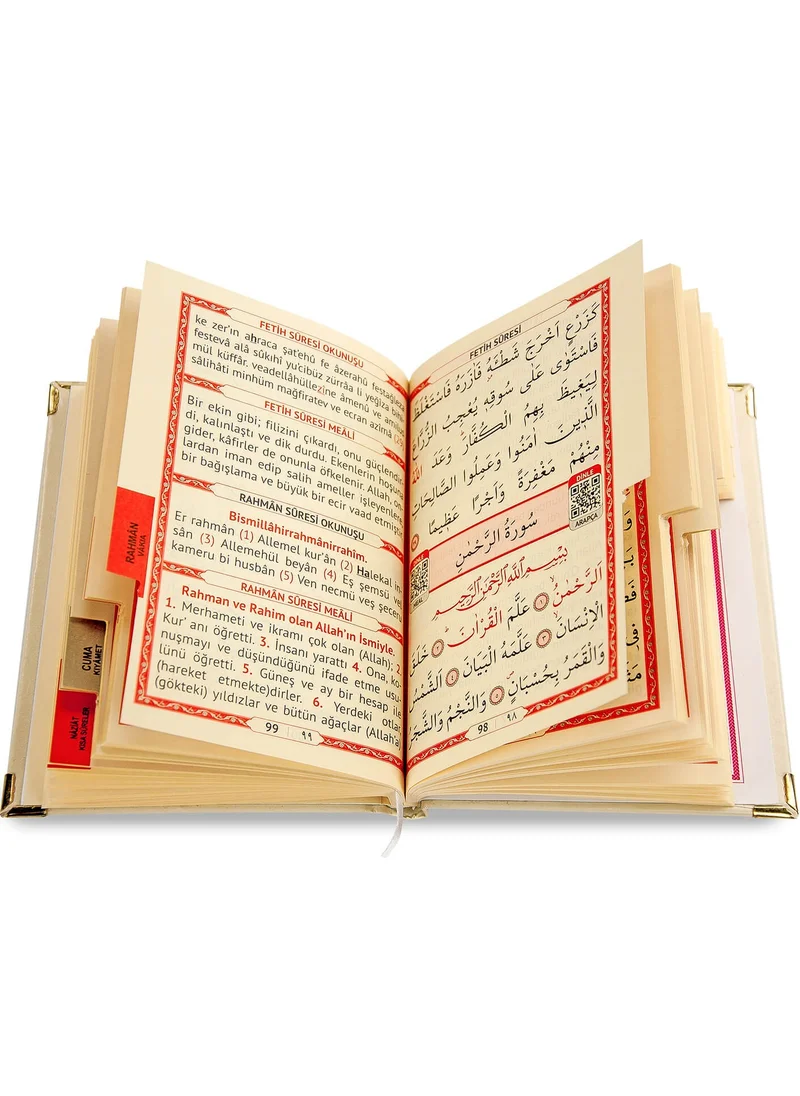 FETİH SÛRESİ
كَزَرْعٍ اَخْرَجَ شَطْـَٔهُ فَاٰزَرَهُ فَاسْتَغْلَظَ
فَاسْتَوٰى عَلٰى سُوقِه۪ يُعْجِبُ الزُّرَّاعَ
لِيَغ۪يظَ بِهِمُ الْكُفَّارَۜ وَعَدَ اللّٰهُ
الَّذ۪ينَ اٰمَنُوا وَعَمِلُوا الصَّالِحَاتِ
مِنْهُمْ مَغْفِرَةً وَاَجْرًا عَظ۪يمًا
DİNLE
ARAPÇA
سُورَةُ الرَّحْمٰنِ
DİNLE
MEAL
بِسْمِ اللّٰهِ الرَّحْمٰنِ الرَّح۪يمِ
اَلرَّحْمٰنُۙ ١ عَلَّمَ الْقُرْاٰنَۜ ٢ خَلَقَ
الْاِنْسَانَۙ ٣ عَلَّمَهُ الْبَيَانَ ٤ اَلشَّمْسُ
وَالْقَمَرُ بِحُسْبَانٍۖ ٥ وَالنَّجْمُ وَالشَّجَرُ
98 ٩٨
FETİH SÛRESİ OKUNUŞU
ke zer'ın ahraca şat'ehû fe âzerahû festağleza
festevâ alâ sûkıhî yu'cibüz zürrâa li yeğîza bihi
mül küffâr. veadellâhüllezîne âmenû ve amilus
sâlihâti minhüm mağfiratev ve ecran azîmâ (29)
FETİH SÛRESİ MEÂLİ
Bir ekin gibi; filizini çıkardı, onu güçlendir
di, kalınlaştı ve dik durdu. Ekenlerin hoşuna
gider, kâfirler de onunla öfkelenir. Allah, on
lardan iman edip salih ameller işleyenlere
bir bağışlama ve büyük bir ecir vaad etmiştir
RAHMÂN SÛRESİ OKUNUŞU
Bismillâhirrahmânirrahîm.
Er rahmân (1) Allemel kur'ân (2) Halekal in
sân (3) Allemehül beyân (4) Eş şemsü vel
kameru bi husbân (5) Ven necmü veş şecer
RAHMÂN SÛRESİ MEÂLİ
Rahman ve Rahim olan Allah'ın İsmiyle.
1. Merhameti ve ikramı çok olan (Allah); 2.
Kur' anı öğretti. 3. İnsanı yarattı 4. Ona, ko
nuşmayı ve düşündüğünü ifade etme usu
lünü öğretti. 5. Güneş ve ay bir hesap ile
(hareket etmekte)dirler. 6. Yerdeki otlar
(gökteki) yıldızlar ve bütün ağaçlar (Allah'a)
99 ٩٩
RAHMÂN
VAKIA
CUMA
KIYAMET
NAZİAT
KISA SÛRELER